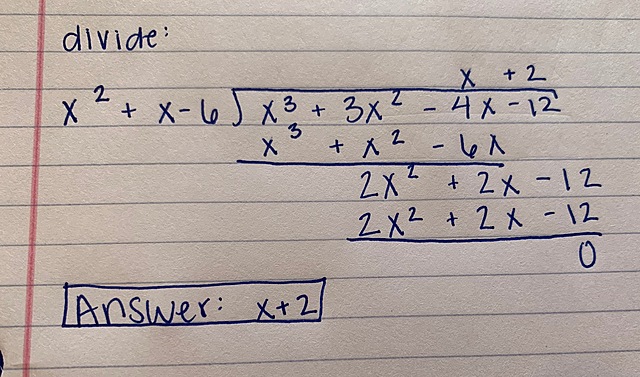 divide:
x + 2
x² + x - 6 ) x³ + 3x² - 4x - 12
x³ + x² - 6x
2x² + 2x - 12
2x² + 2x - 12
0
Answer: x+2